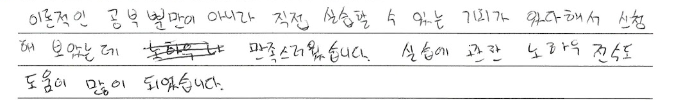 이론적인 공부 뿐만이 아니라 직접 실습할 수 있는 기회가 있다해서 신청
해 보았는데 만족스러웠습니다. 실습에 관한 노하우 전수도
도움이 많이 되었습니다.